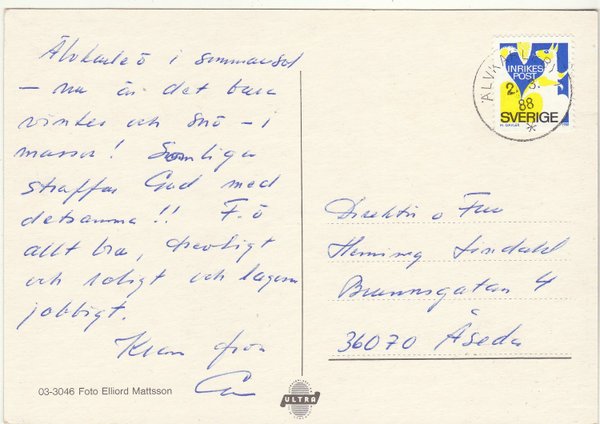 Älvkarleö i sommarsol
– nu är det bara
vinter och snö – i
massor! Somliga
straffar Gud med
detsamma!! F. ö
allt bra, trevligt
och roligt och lagom
jobbigt.
Kram från
03-3046 Foto Elliord Mattsson
ULTRA
INRIKES
POST
SVERIGE
88
Direktör o Fru
Henning Lindahl
Brunnsgatan 4
36070 Åseda